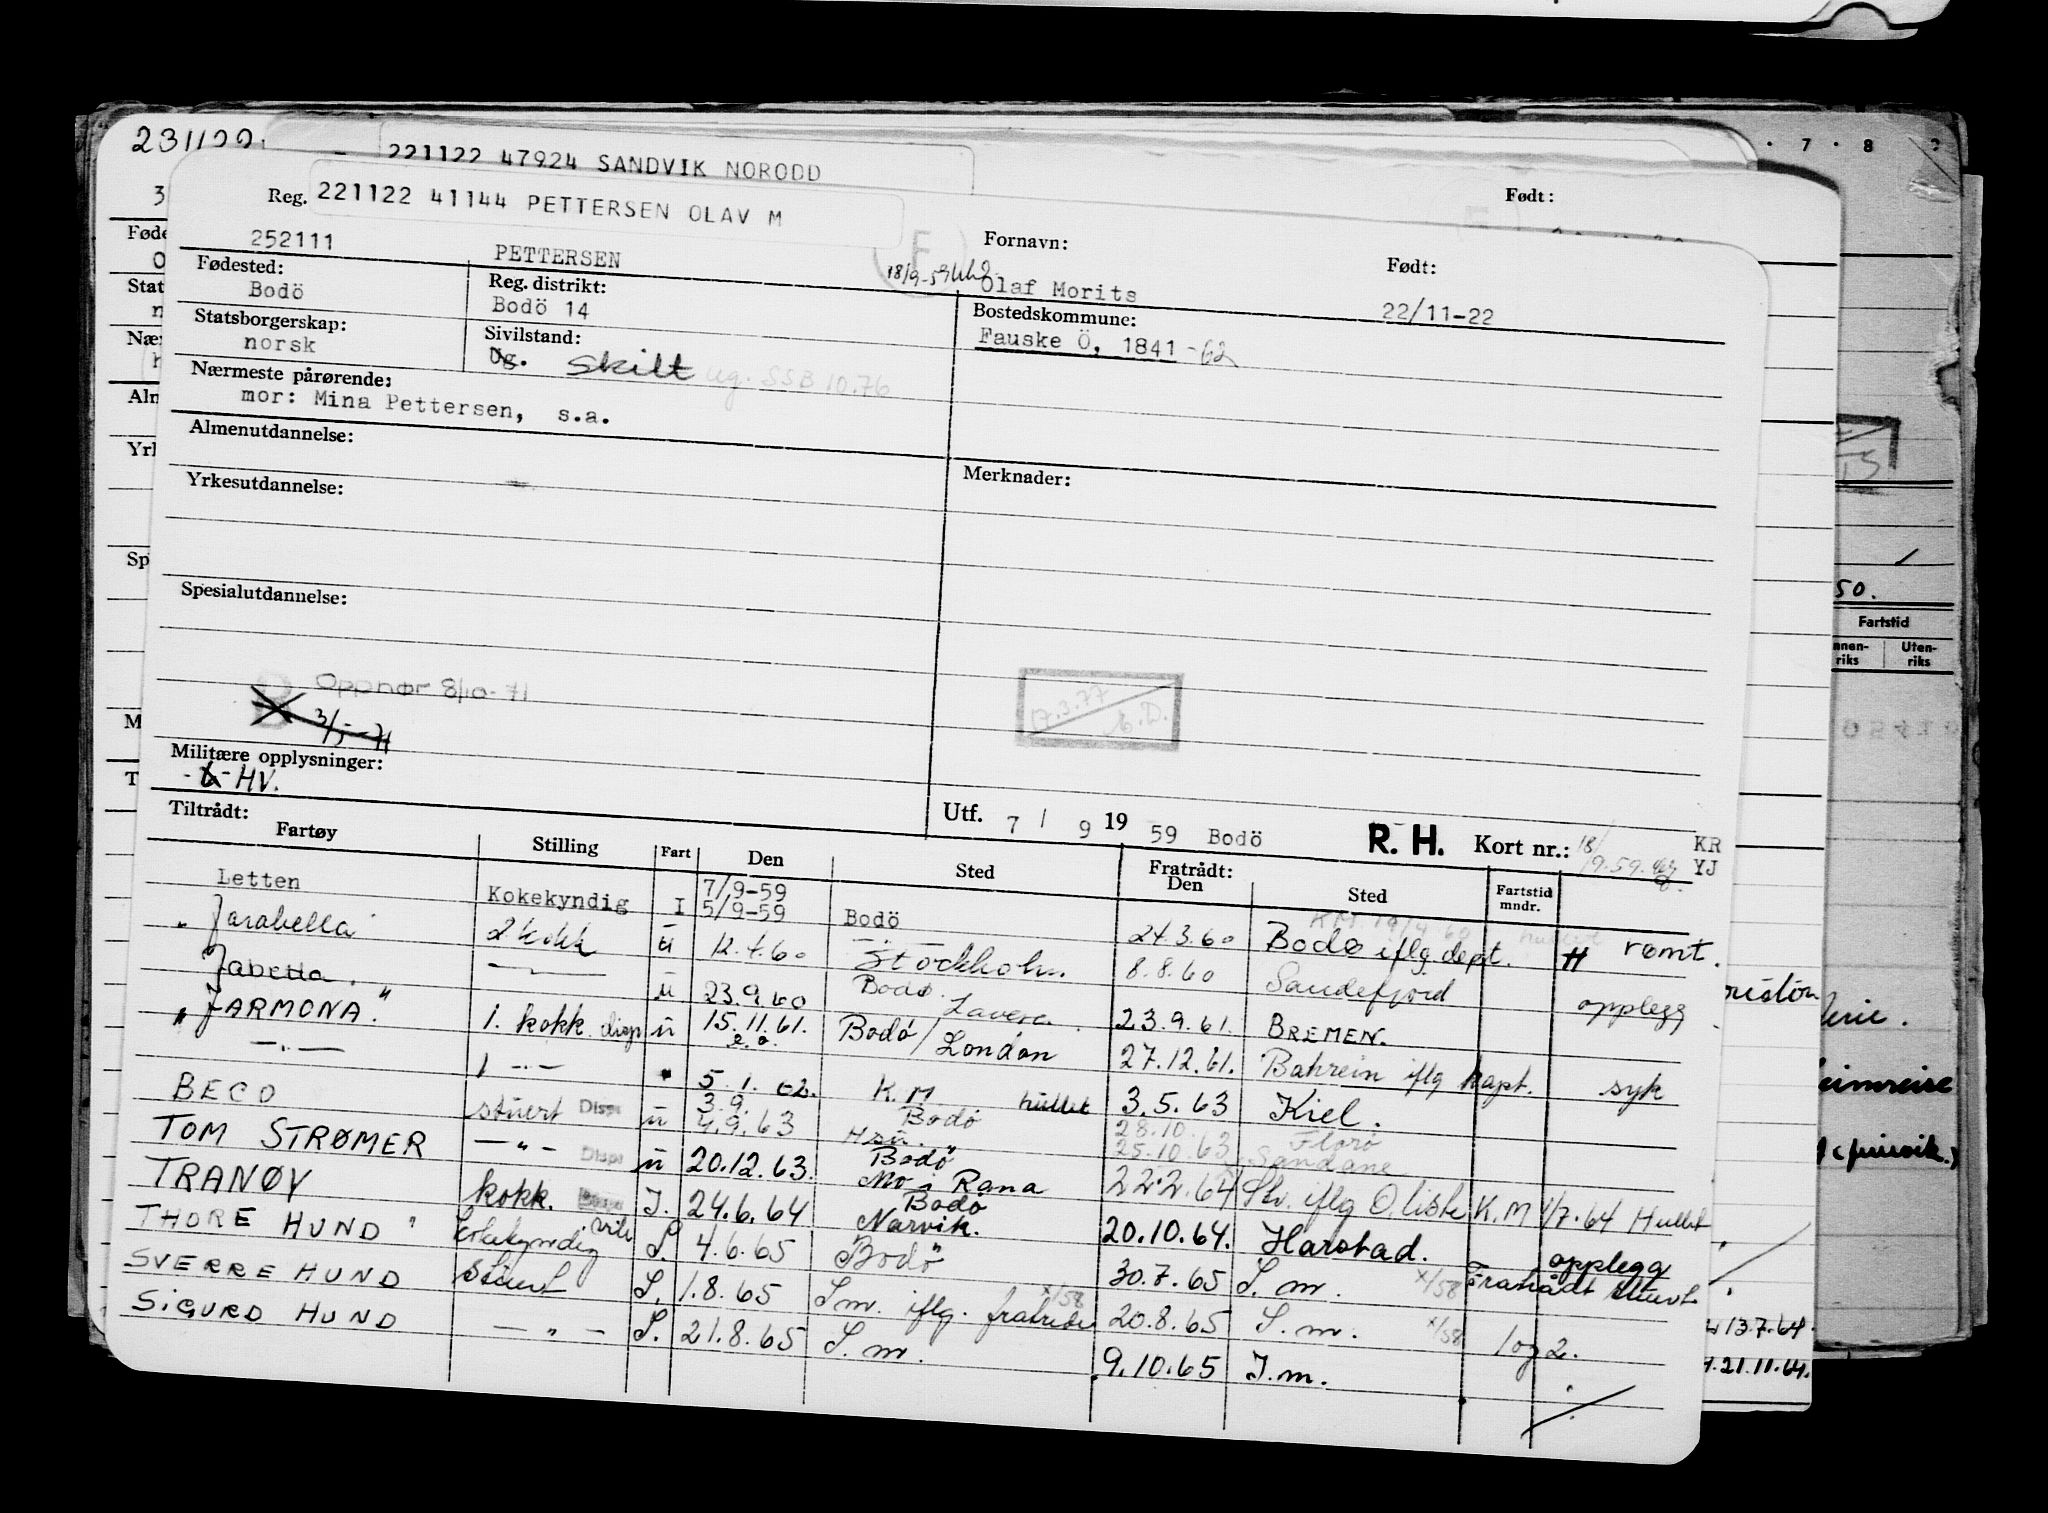 231122
221122 47924 SANDVIK NORODD
Født:
Reg. 221122 41144 PETTERSEN OLAV M
252111 PETTERSEN Fornavn: Født:
18/9-59 Olaf Morits 22/11-22
Fødested: Reg. distrikt: Bostedskommune:
Bodö Bodö 14 Fauske Ö, 1841 -62
Statsborgerskap: Sivilstand:
norsk Ug. Skilt ug. SSB 10.76
Nærmeste pårørende:
mor: Mina Pettersen, s.a.
Almenutdannelse:
Yrkesutdannelse: Merknader:
Spesialutdannelse:
Opphør 8/10-71
3/5-71
17.3.77
Militære opplysninger:
HV.
Utf. 7 / 9 19 59 Bodö R. H. Kort nr.: 18/9.59. KR YJ
Tiltrådt: Fratrådt:
Fartøy Stilling Fart Den Sted Den Sted Fartstid mndr.
Letten Kokekyndig I 7/9-59 5/9-59 Bodö 24.3.60 Bodø iflg dept. rømt.
" Jarabella 2 kokk ü 12.4.60 Stockholm. 8.8.60 Sandefjord opplegg
Jabetta " — " — ü 23.9.60 Bodø. / Lavera 23.9.61. BREMEN.
" JARMONA. 1. kokk disp ü 15.11.61. e.o. Bodø/London 27.12.61. Bahrein iflg kapt. syk
— " — 1 — " — " 5.1.62. K.M hullet 3.5.63 Kiel.
BECO stuert Disp ü 3.9. 4.9.63 Bodø 28.10. 25.10.63 Florø Sandane
TOM STRØMER — " — Disp ü 20.12.63. Bodø Mo i Rana 22.2.64 iflg O. liste K.M 1/7.64 Hullet
TRANØY kokk. I. 24.6.64 Bodø Narvik. 20.10.64. Harstad. opplegg
THORE HUND kokekyndig S. 4.6.65 Bodø 30.7.65 S.m. x/58 Fratrådt stuert
SVERRE HUND Stuert S. 1.8.65 S.m. iflg. fratrede x/58 20.8.65 S.m. x/58 1 og 2.
SIGURD HUND — " — S. 21.8.65 S.m. 9.10.65 S.m.
7 8
50.
Fartstid
Uten-riks
13.7.64.
21.11.64.